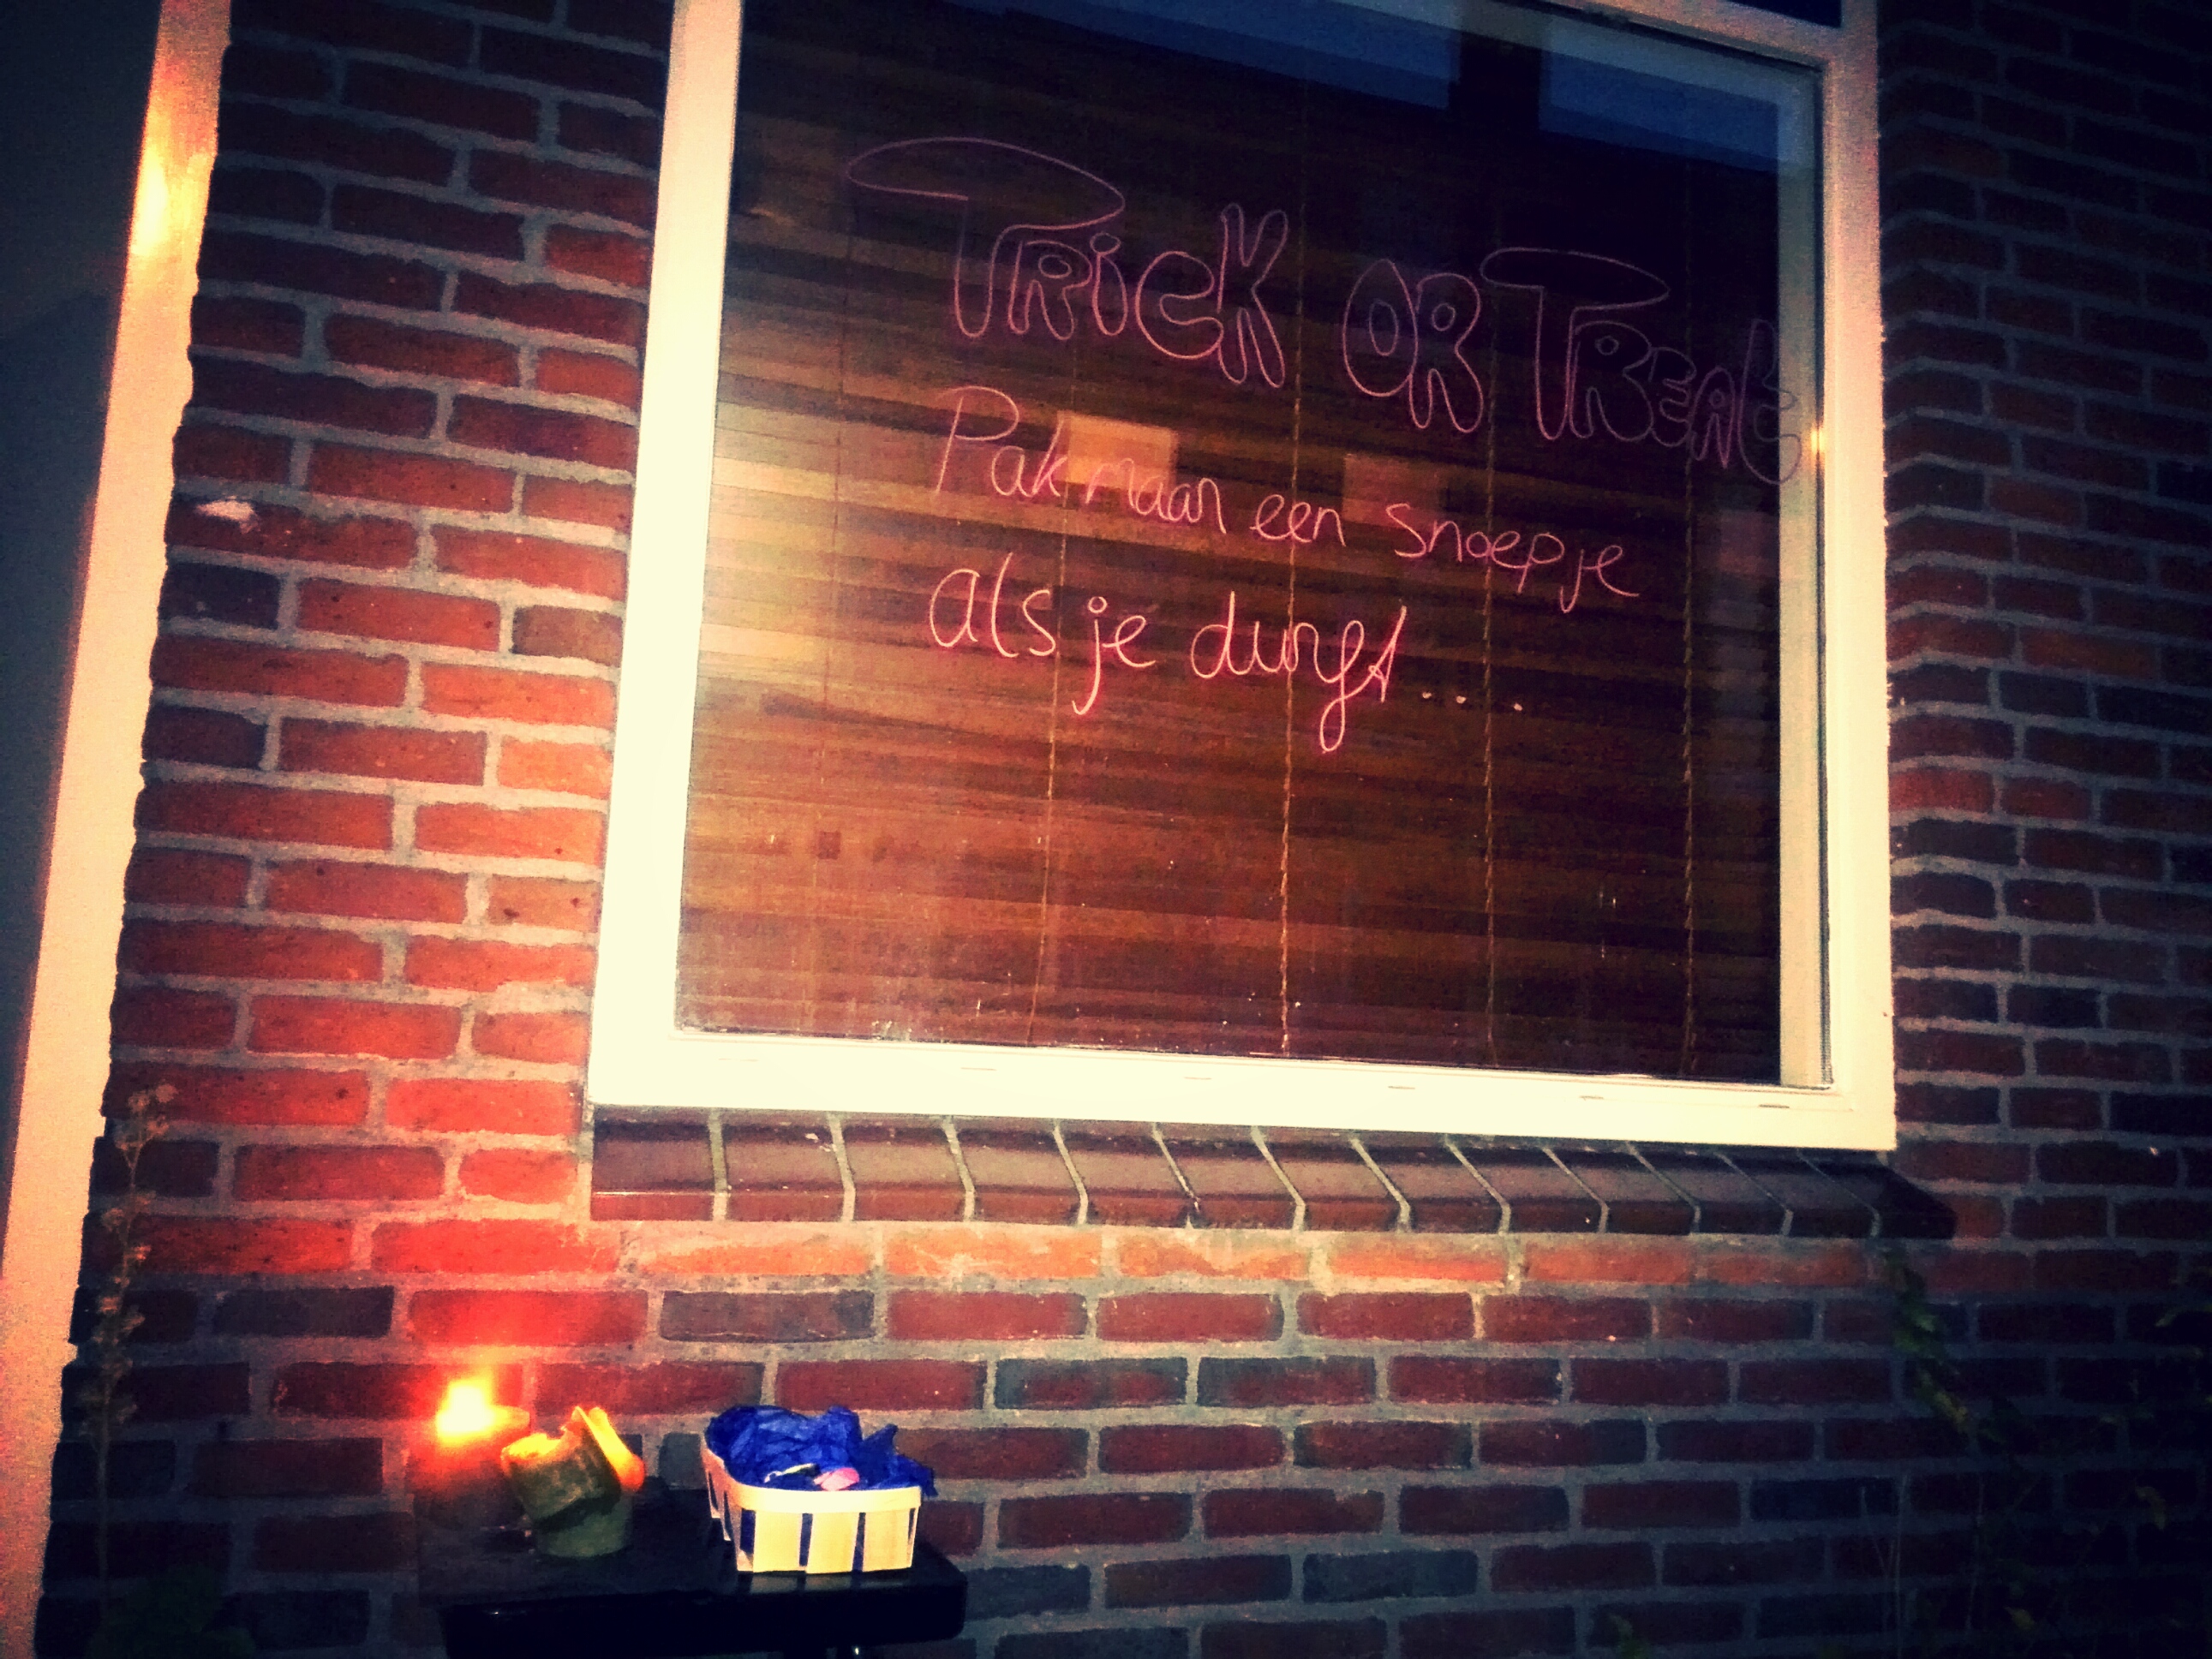 TRiCK OR TREAt
Pak maar een snoepje
als je durft ...